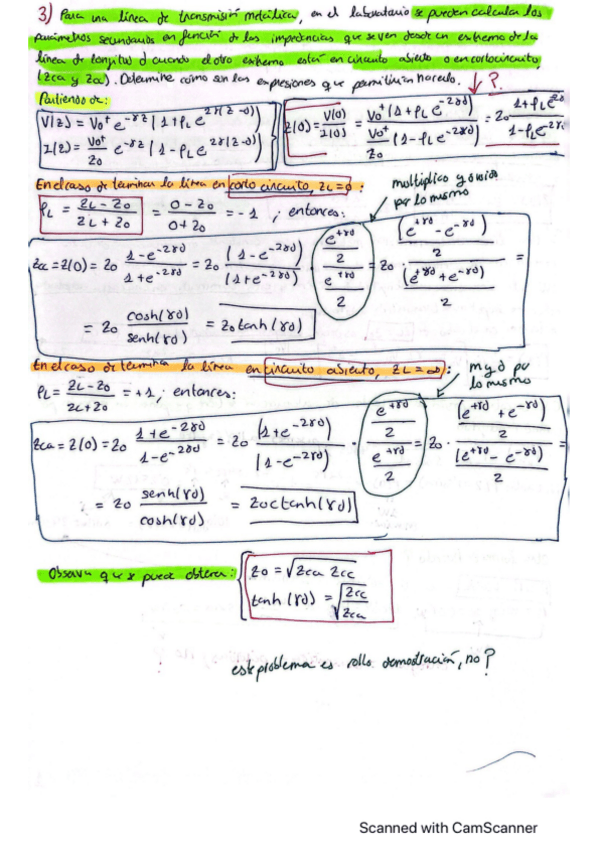 3) Para una línea de transmisión metálica, en el laboratorio se pueden calcular los
parámetros secundarios en función de las impedancias que se ven desde un extremo de la
línea de longitud d cuando el otro extremo está en circuito abierto o en cortocircuito
(Zca y Zcc). Determine cómo son las expresiones que permitirían hacerlo. ?
Partiendo de:
V(z) = V0+ e^-γz (1+ρL e^2γ(z-d))
I(z) = V0+/Z0 e^-γz (1-ρL e^2γ(z-d))
Z(0) = V(0)/I(0) = V0+(1+ρL e^-2γd) / V0+/Z0 (1-ρL e^-2γd) = Z0 1+ρL e^-2γd / 1-ρL e^-2γd
En el caso de terminar la línea en corto circuito, ZL=0:
multiplico y divido
por lo mismo
ρL = ZL-Z0 / ZL+Z0 = 0-Z0 / 0+Z0 = -1; entonces:
Zcc = Z(0) = Z0 1-e^-2γd / 1+e^-2γd = Z0 (1-e^-2γd) / (1+e^-2γd) · e^+γd/2 / e^+γd/2 = Z0 · (e^+γd - e^-γd)/2 / (e^+γd + e^-γd)/2 =
= Z0 cosh(γd) / senh(γd) = Z0 tanh(γd)
En el caso de terminar la línea en circuito abierto, ZL=∞):
m y d por
lo mismo
ρL = ZL-Z0 / ZL+Z0 = +1; entonces:
Zca = Z(0) = Z0 1+e^-2γd / 1-e^-2γd = Z0 · (1+e^-2γd) / (1-e^-2γd) · e^+γd/2 / e^+γd/2 = Z0 · (e^+γd + e^-γd)/2 / (e^+γd - e^-γd)/2 =
= Z0 senh(γd) / cosh(γd) = Z0 ctanh(γd)
Observa que se puede obtener:
Z0 = √Zca Zcc
tanh(γd) = √Zcc / √Zca
este problema es rollo demostración, no?
Scanned with CamScanner